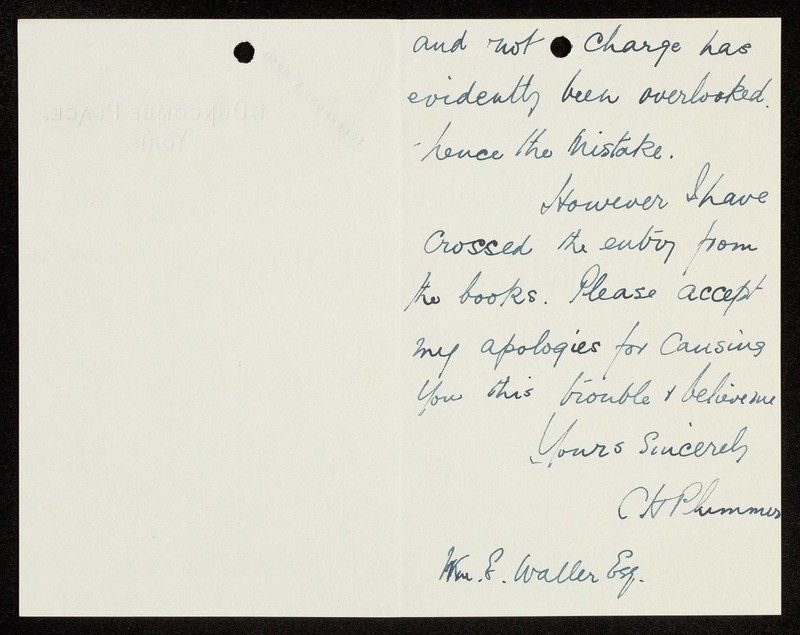 1, DUNCOMBE PLACE,
YORK.
and not charge has
evidently been overlooked.
hence the Mistake.
However I have
Crossed the entry from
the books. Please accept
my apologies for Causing
you this trouble & believe me
Yours Sincerely
C H Plummer
Wm. E. Waller Esq.